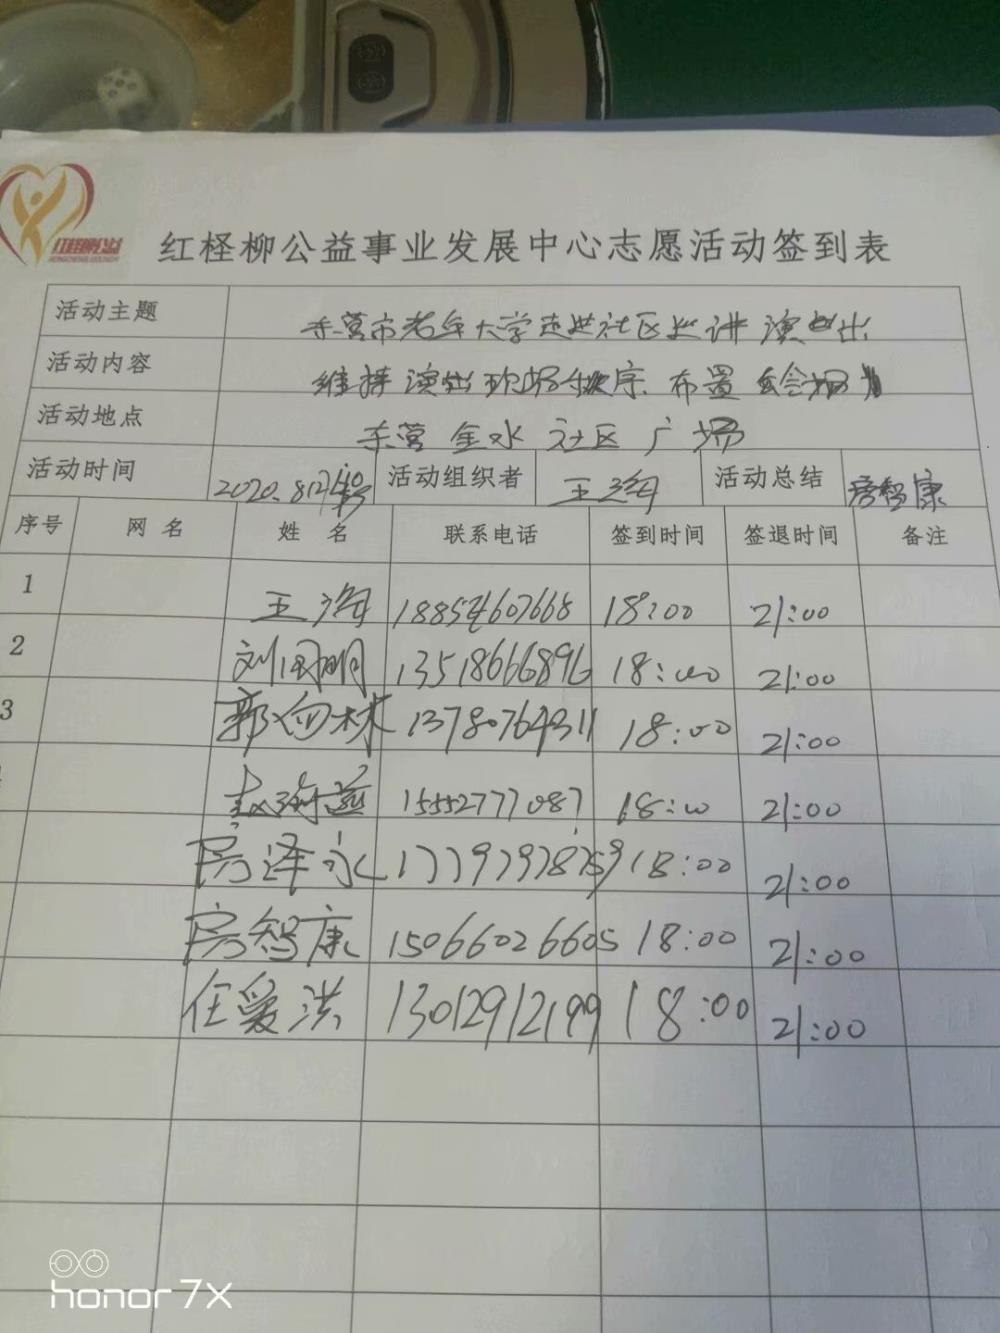 红柽柳公益
红柽柳公益事业发展中心志愿活动签到表
活动主题 东营市老年大学走进社区巡讲演出
活动内容 维持演出现场秩序、布置会场
活动地点 东营金水社区广场
活动时间 2020.8 活动组织者 王海 活动总结 房智康
序号 网名 姓名 联系电话 签到时间 签退时间 备注
1 王海 18:00 21:00
2 刘国明 13518666896 18:00 21:00
3 郭向林 13780764311 18:00 21:00
赵海燕 15552777087 18:00 21:00
房泽永 18:00 21:00
房智康 15066026605 18:00 21:00
任爱洪 13012912199 18:00 21:00
honor 7X